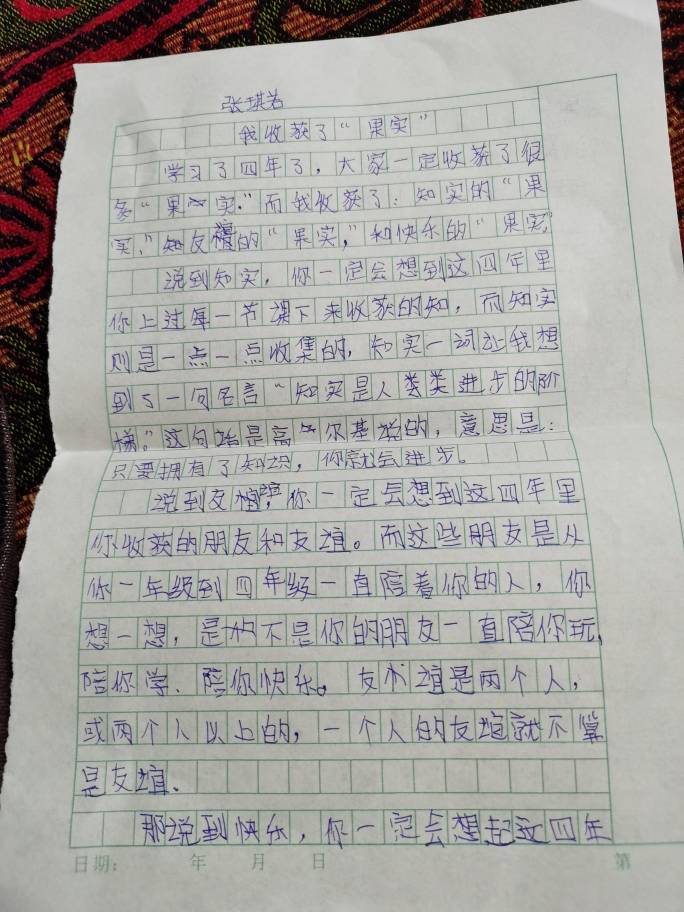 张琪若
我收获了“果实”
学习了四年了，大家一定收获了很
多“果实。”而我收获了：知实的“果
实”、友谊的“果实，”和快乐的“果实”
说到知实，你一定会想到这四年里
你上过每一节课下来收获的知，而知实
则是一点一点收集的，知实一词让我想
到了一句名言“知实是人类类进步的阶
梯。”这句话是高尔基说的，意思是：
只要拥有了知识，你就会进步。
说到友谊，你一定会想到这四年里
你收获的朋友和友谊。而这些朋友是从
你一年级到四年级一直陪着你的人，你
想一想，是不是你的朋友一直陪你玩，
陪你学、陪你快乐。友谊是两个人，
或两个人以上的，一个人的友谊就不算
是友谊。
那说到快乐，你一定会想起这四年
日期： 年 月 日 第